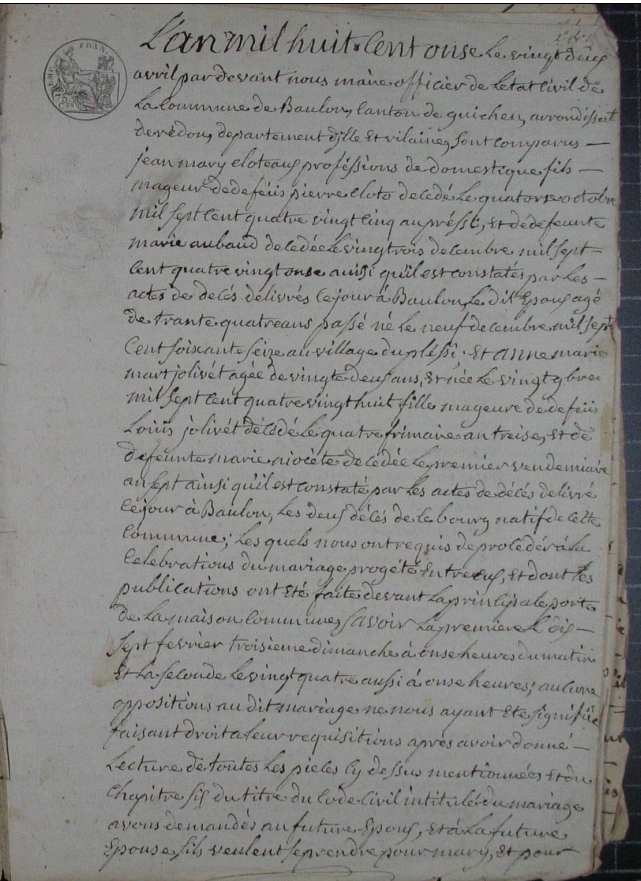 L'an mil huit cent onse le vingt deus
avril par devant nous maire officier de letat civil de
la commune de Baulon, canton de guichen, arrondissat
de redon, departement d'ille et vilaine, sont comparus —
jean mary cloteaux proféssions de domestique fils —
mageur de defeüs pierre cloto décédé le quatorse octobre
mil sept cent quatre vingt cinq au pléssi, et de defeunte
marie aubaud décédée le vingt trois decembre mil sept —
cent quatre vingt onse ainsi qu'il est constatés par les —
actes de decés délivrés ce jour à Baulon, le dit Epous agé
de trante quatre ans passé né le neuf decembre mil sept
cent soixante seize au village du pléssi; Et anne marie
mart jolivét agée de vingt deus ans, Et née le vingt 9bre
mil sept cent quatre vingt huit fille mageure de defeüs
Louis jolivét décédé le quatre frimaire an treise, et de
defeunte marie niocéte décédée le premier vendemiaire
an sept ainsi qu'il est constaté par les actes de décés délivré
ce jour à Baulon, les deus décés de le bourg natif de cette
commune; les quels nous ont requis de procédér à la
celebrations du mariage progété entre eus, Et dont les
publications ont Eté faite devant la principale porte
de la maison commune, savoir la premiere le dis —
sept fevrier troisieme dimanche à onse heures du matin
Et la seconde le vingt quatre aussi à onse heures; aucune
oppositions au dit mariage ne nous ayant Eté signifiée
faisant droit a leur requisitions aprés avoir donné —
lecture de toutes les pieces cy dessus mentionnées et du
chapitre six du titre du code civil intitulé du mariage
avons demandés au future Epous, Et à la future
Epouse s'ils veulent se prendre pour mary, et pour